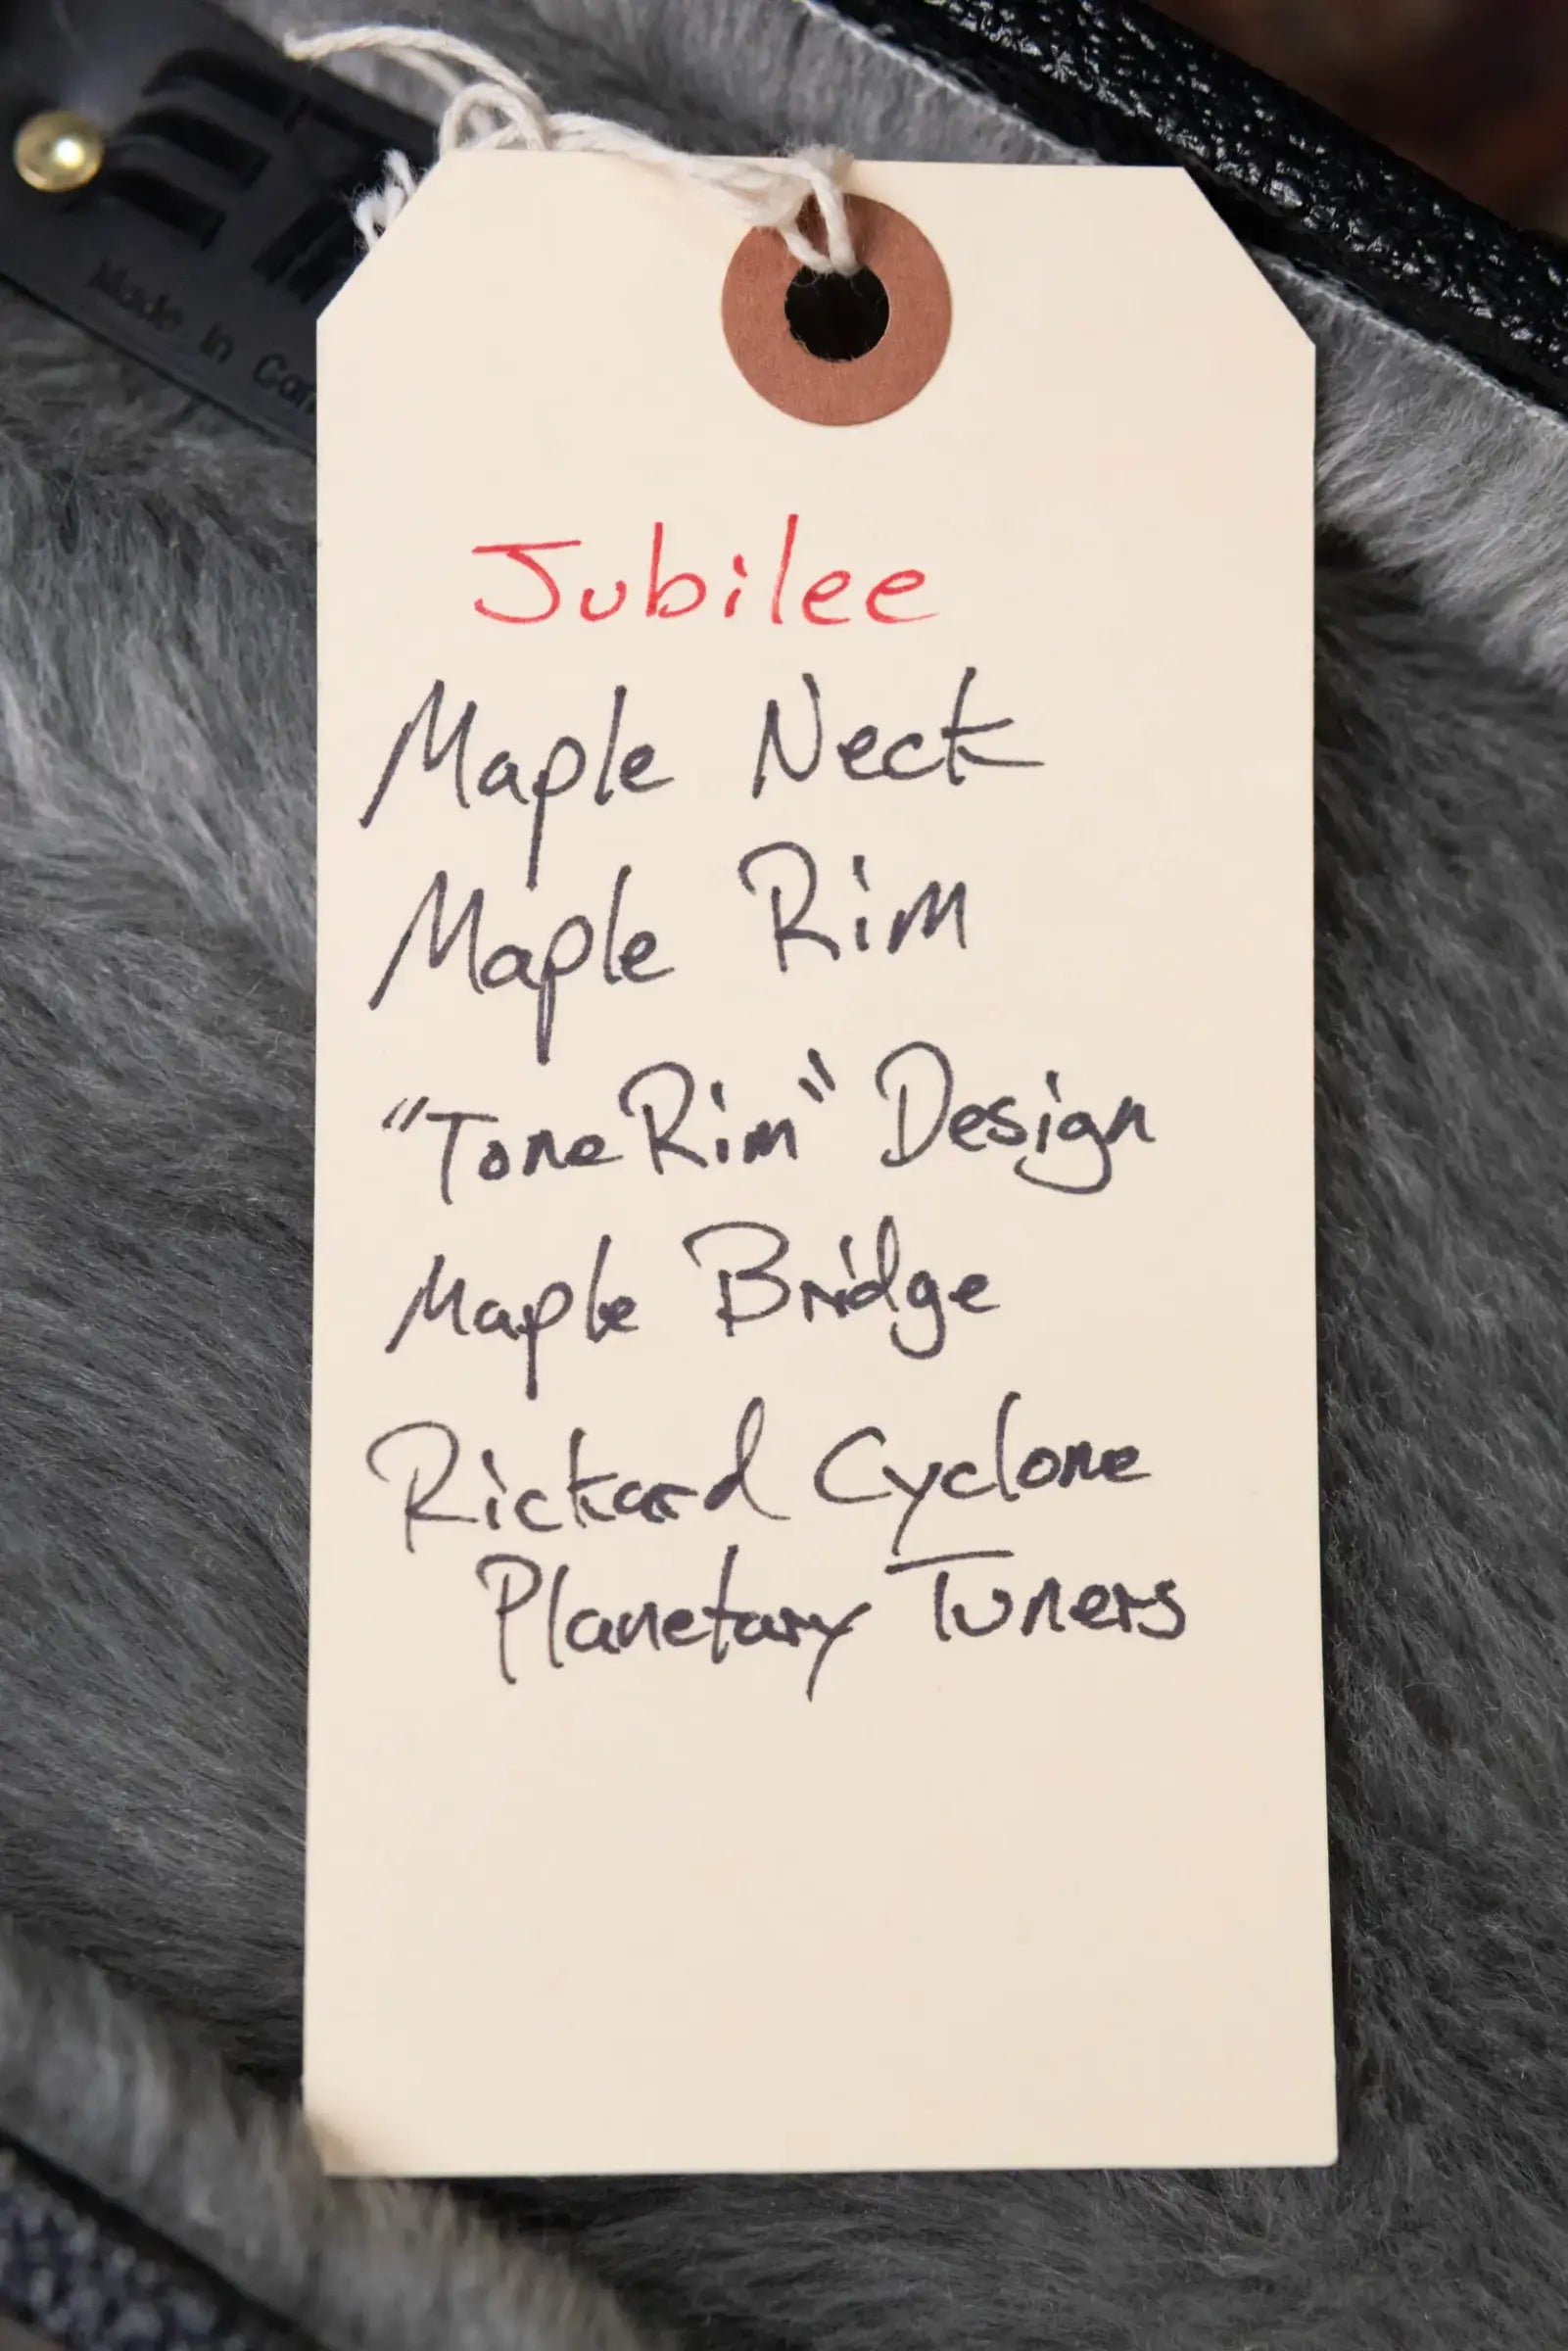 Made In
Jubilee
Maple Neck
Maple Rim
"ToneRim" Design
Maple Bridge
Rickard Cyclone
Planetary Tuners